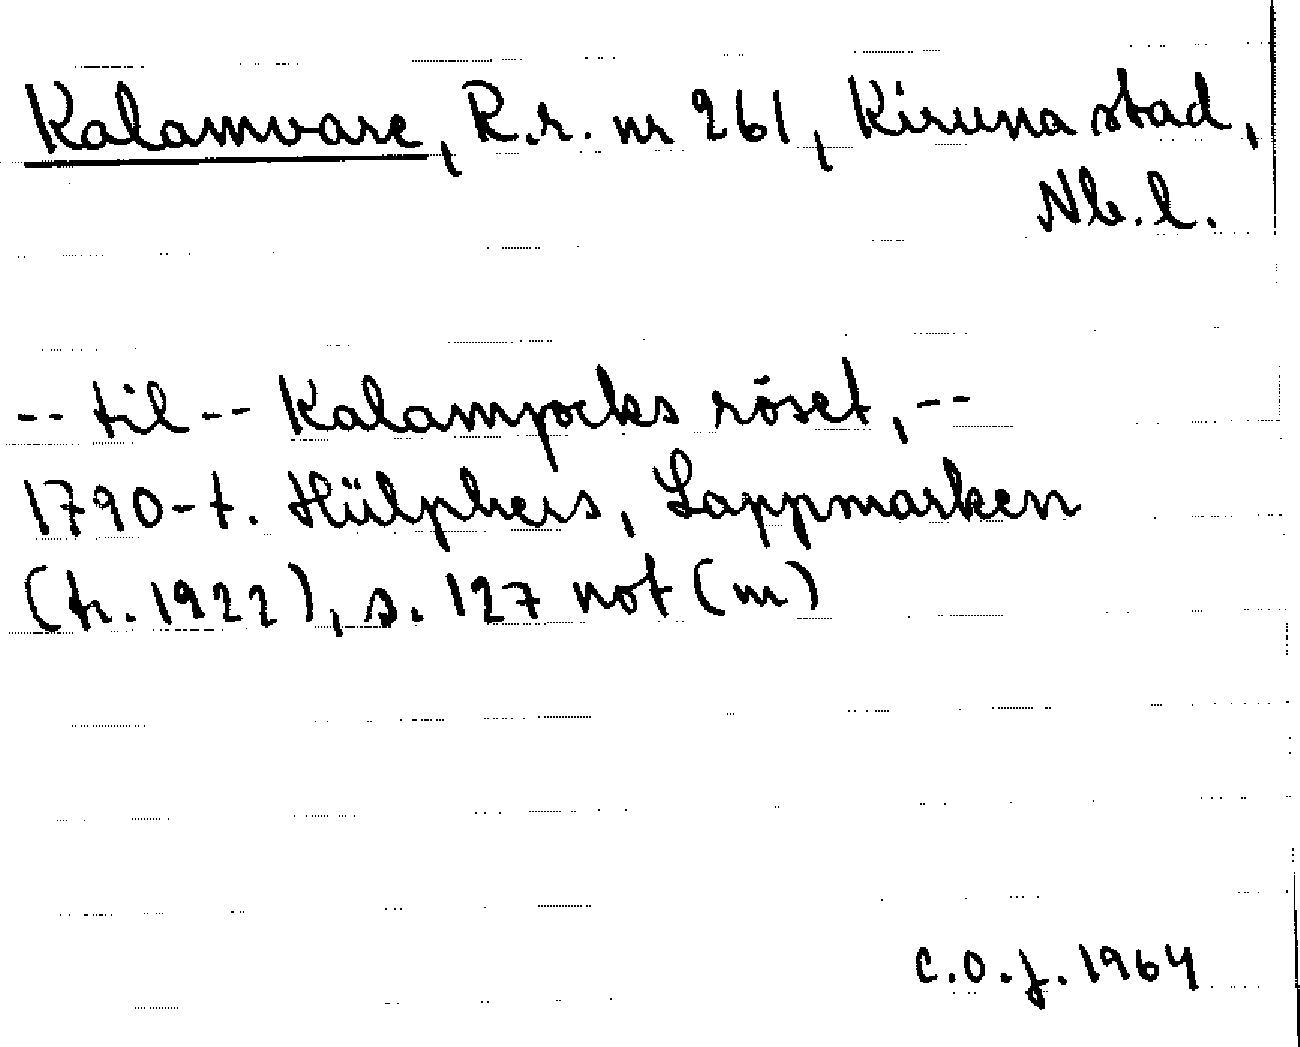 Kalamvare, R.r. nr 261, Kiruna stad,
Nb.l.
-- til -- Kalampocks röset, --
1790-t. Hülphers, Lappmarken
(tr. 1922), s. 127 not (m)
C.O.J. 1964